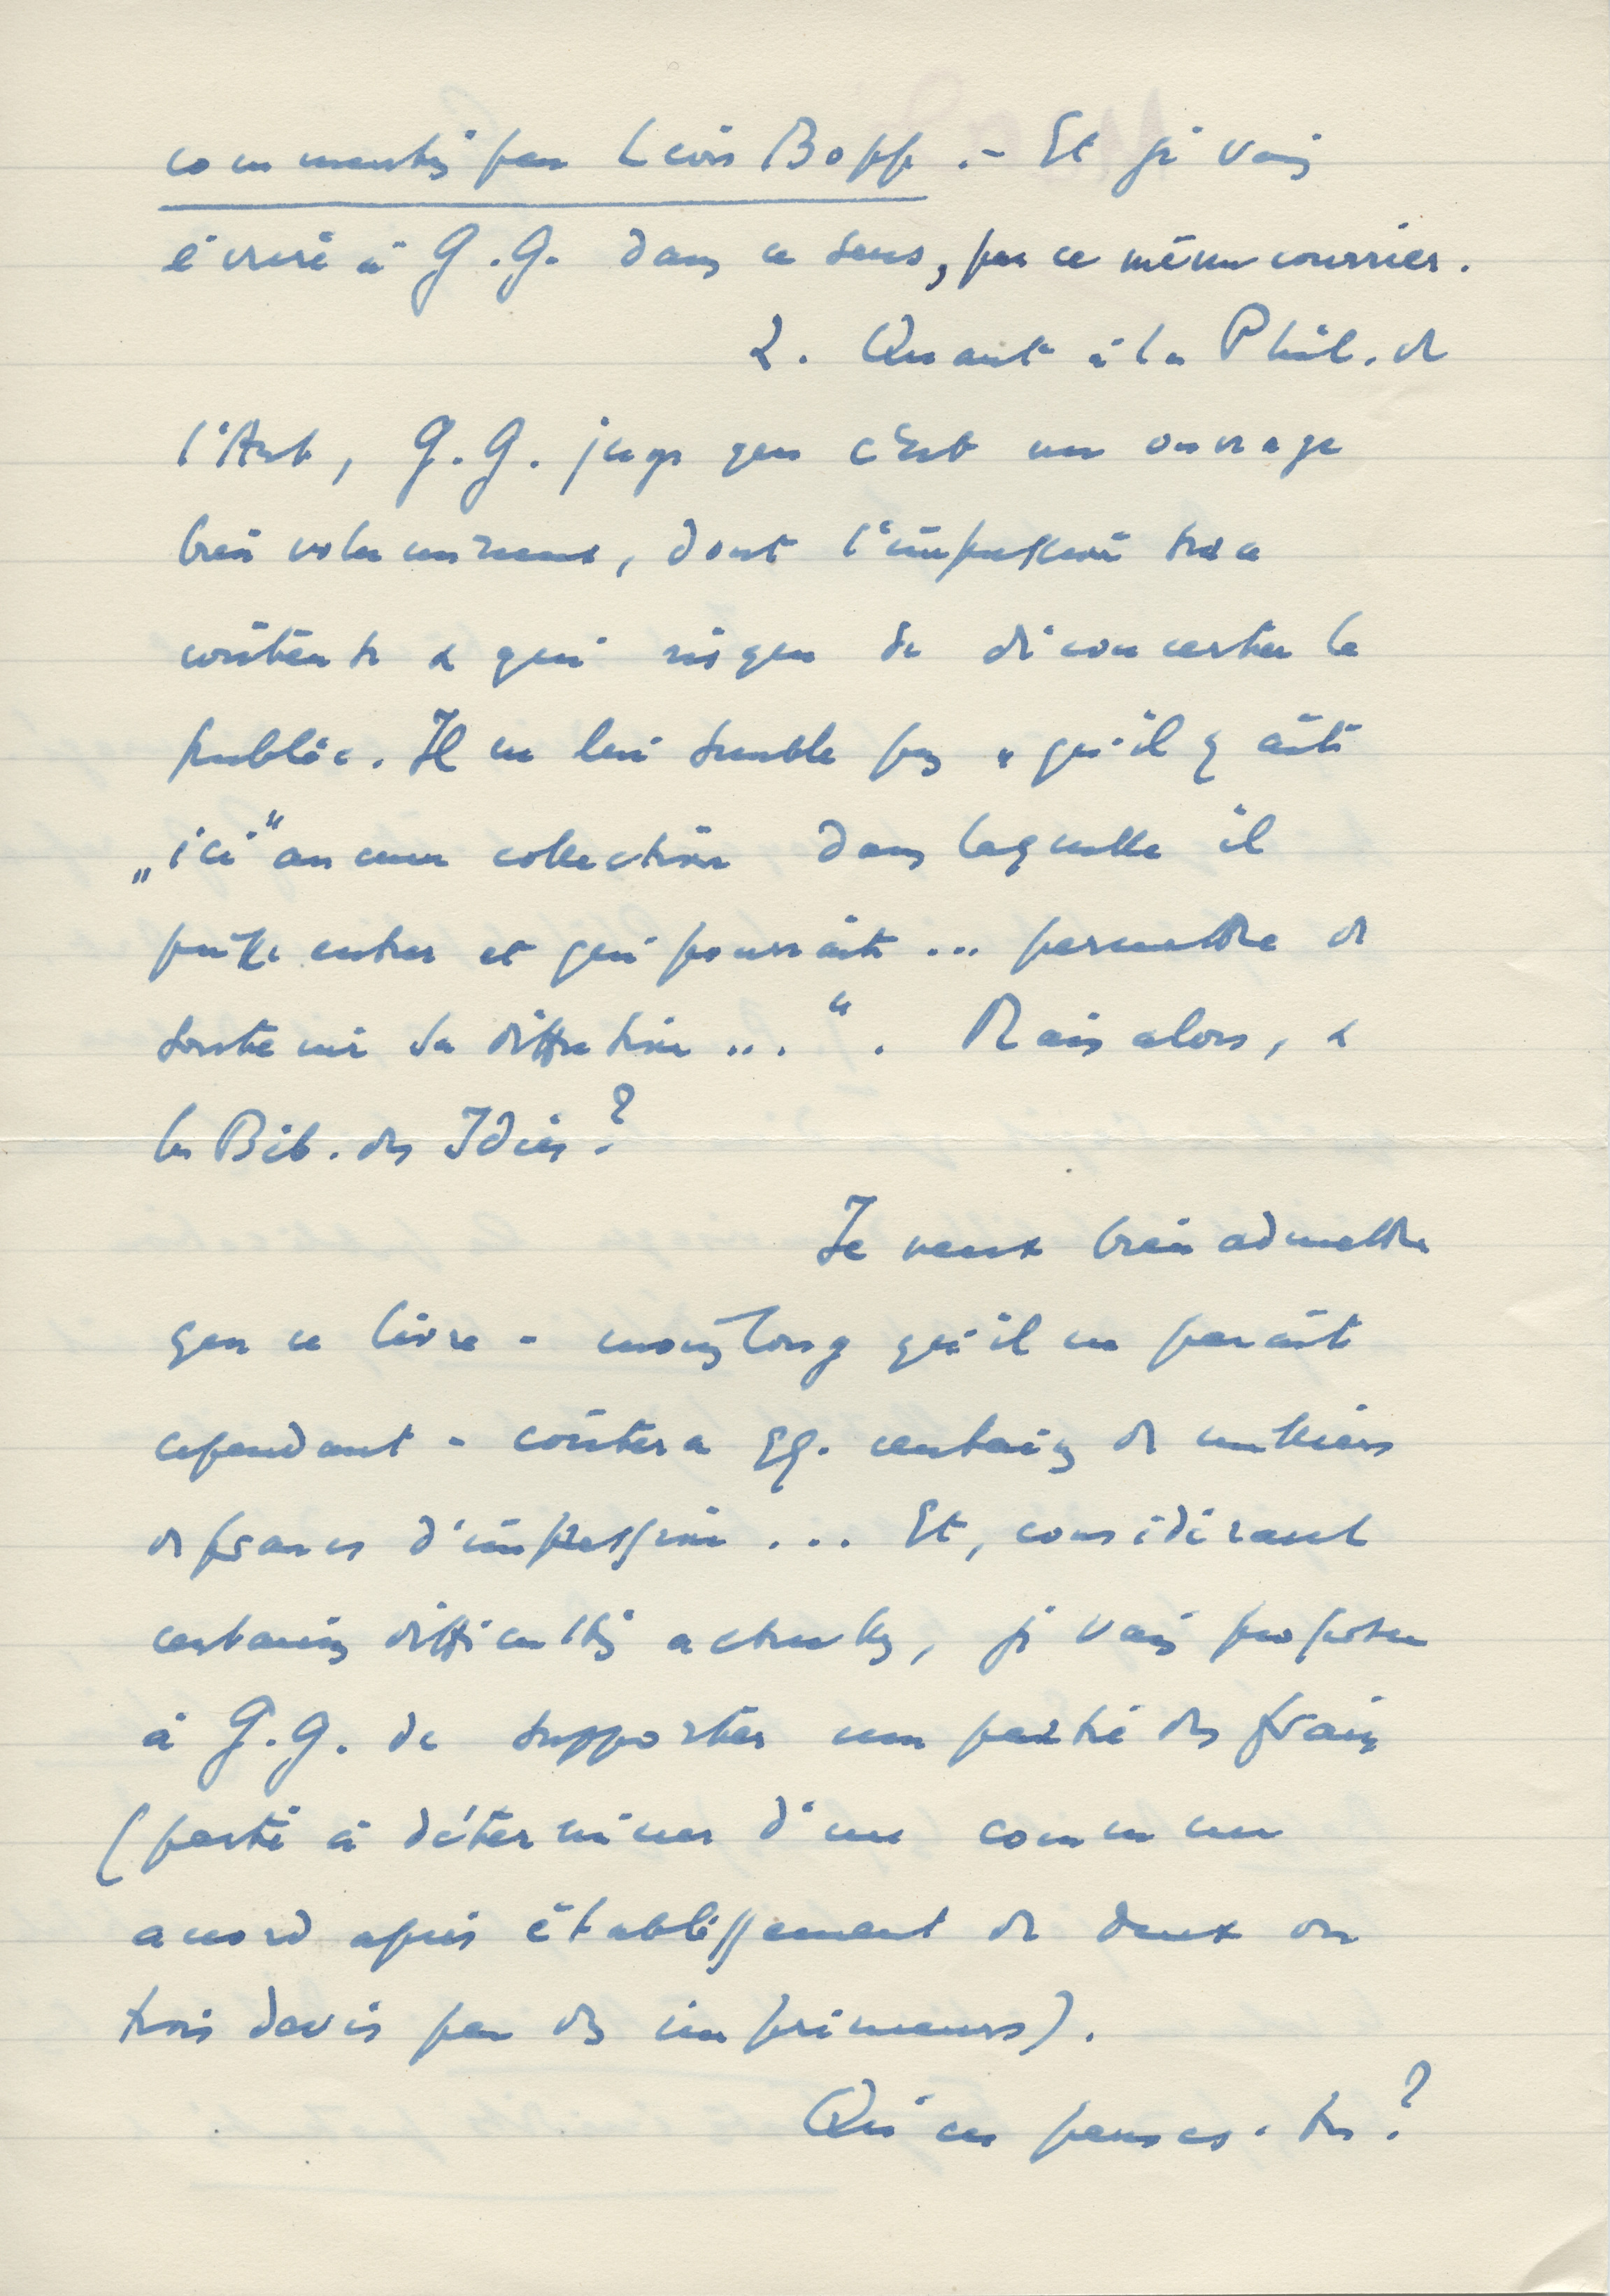 commentés par Léon Bopp. - Et je vais
écrire à G.G. dans ce sens, par ce même courrier.
2. Quant à la Phil. de
l'Art, G.G. juge que c'est un ouvrage
bien volumineux, dont l'impression sera
coûteuse & qui risque de déconcerter le
public. Il ne lui semble pas "qu'il y ait
"ici" aucune collection dans laquelle il
puisse entrer et qui pourrait ... permettre de
soutenir sa diffusion ...". Mais alors, &
la Bib. des Idées?
Je veux bien admettre
que ce livre - moins long qu'il ne paraît
cependant - coûtera qq. centaines de milliers
de francs d'impression ... Et, considérant
certaines difficultés actuelles, je vais proposer
à G.G. de supporter une partie des frais
(partie à déterminer d'un commun
accord après établissement de deux ou
trois devis par des imprimeurs).
Qu'en penses-tu?